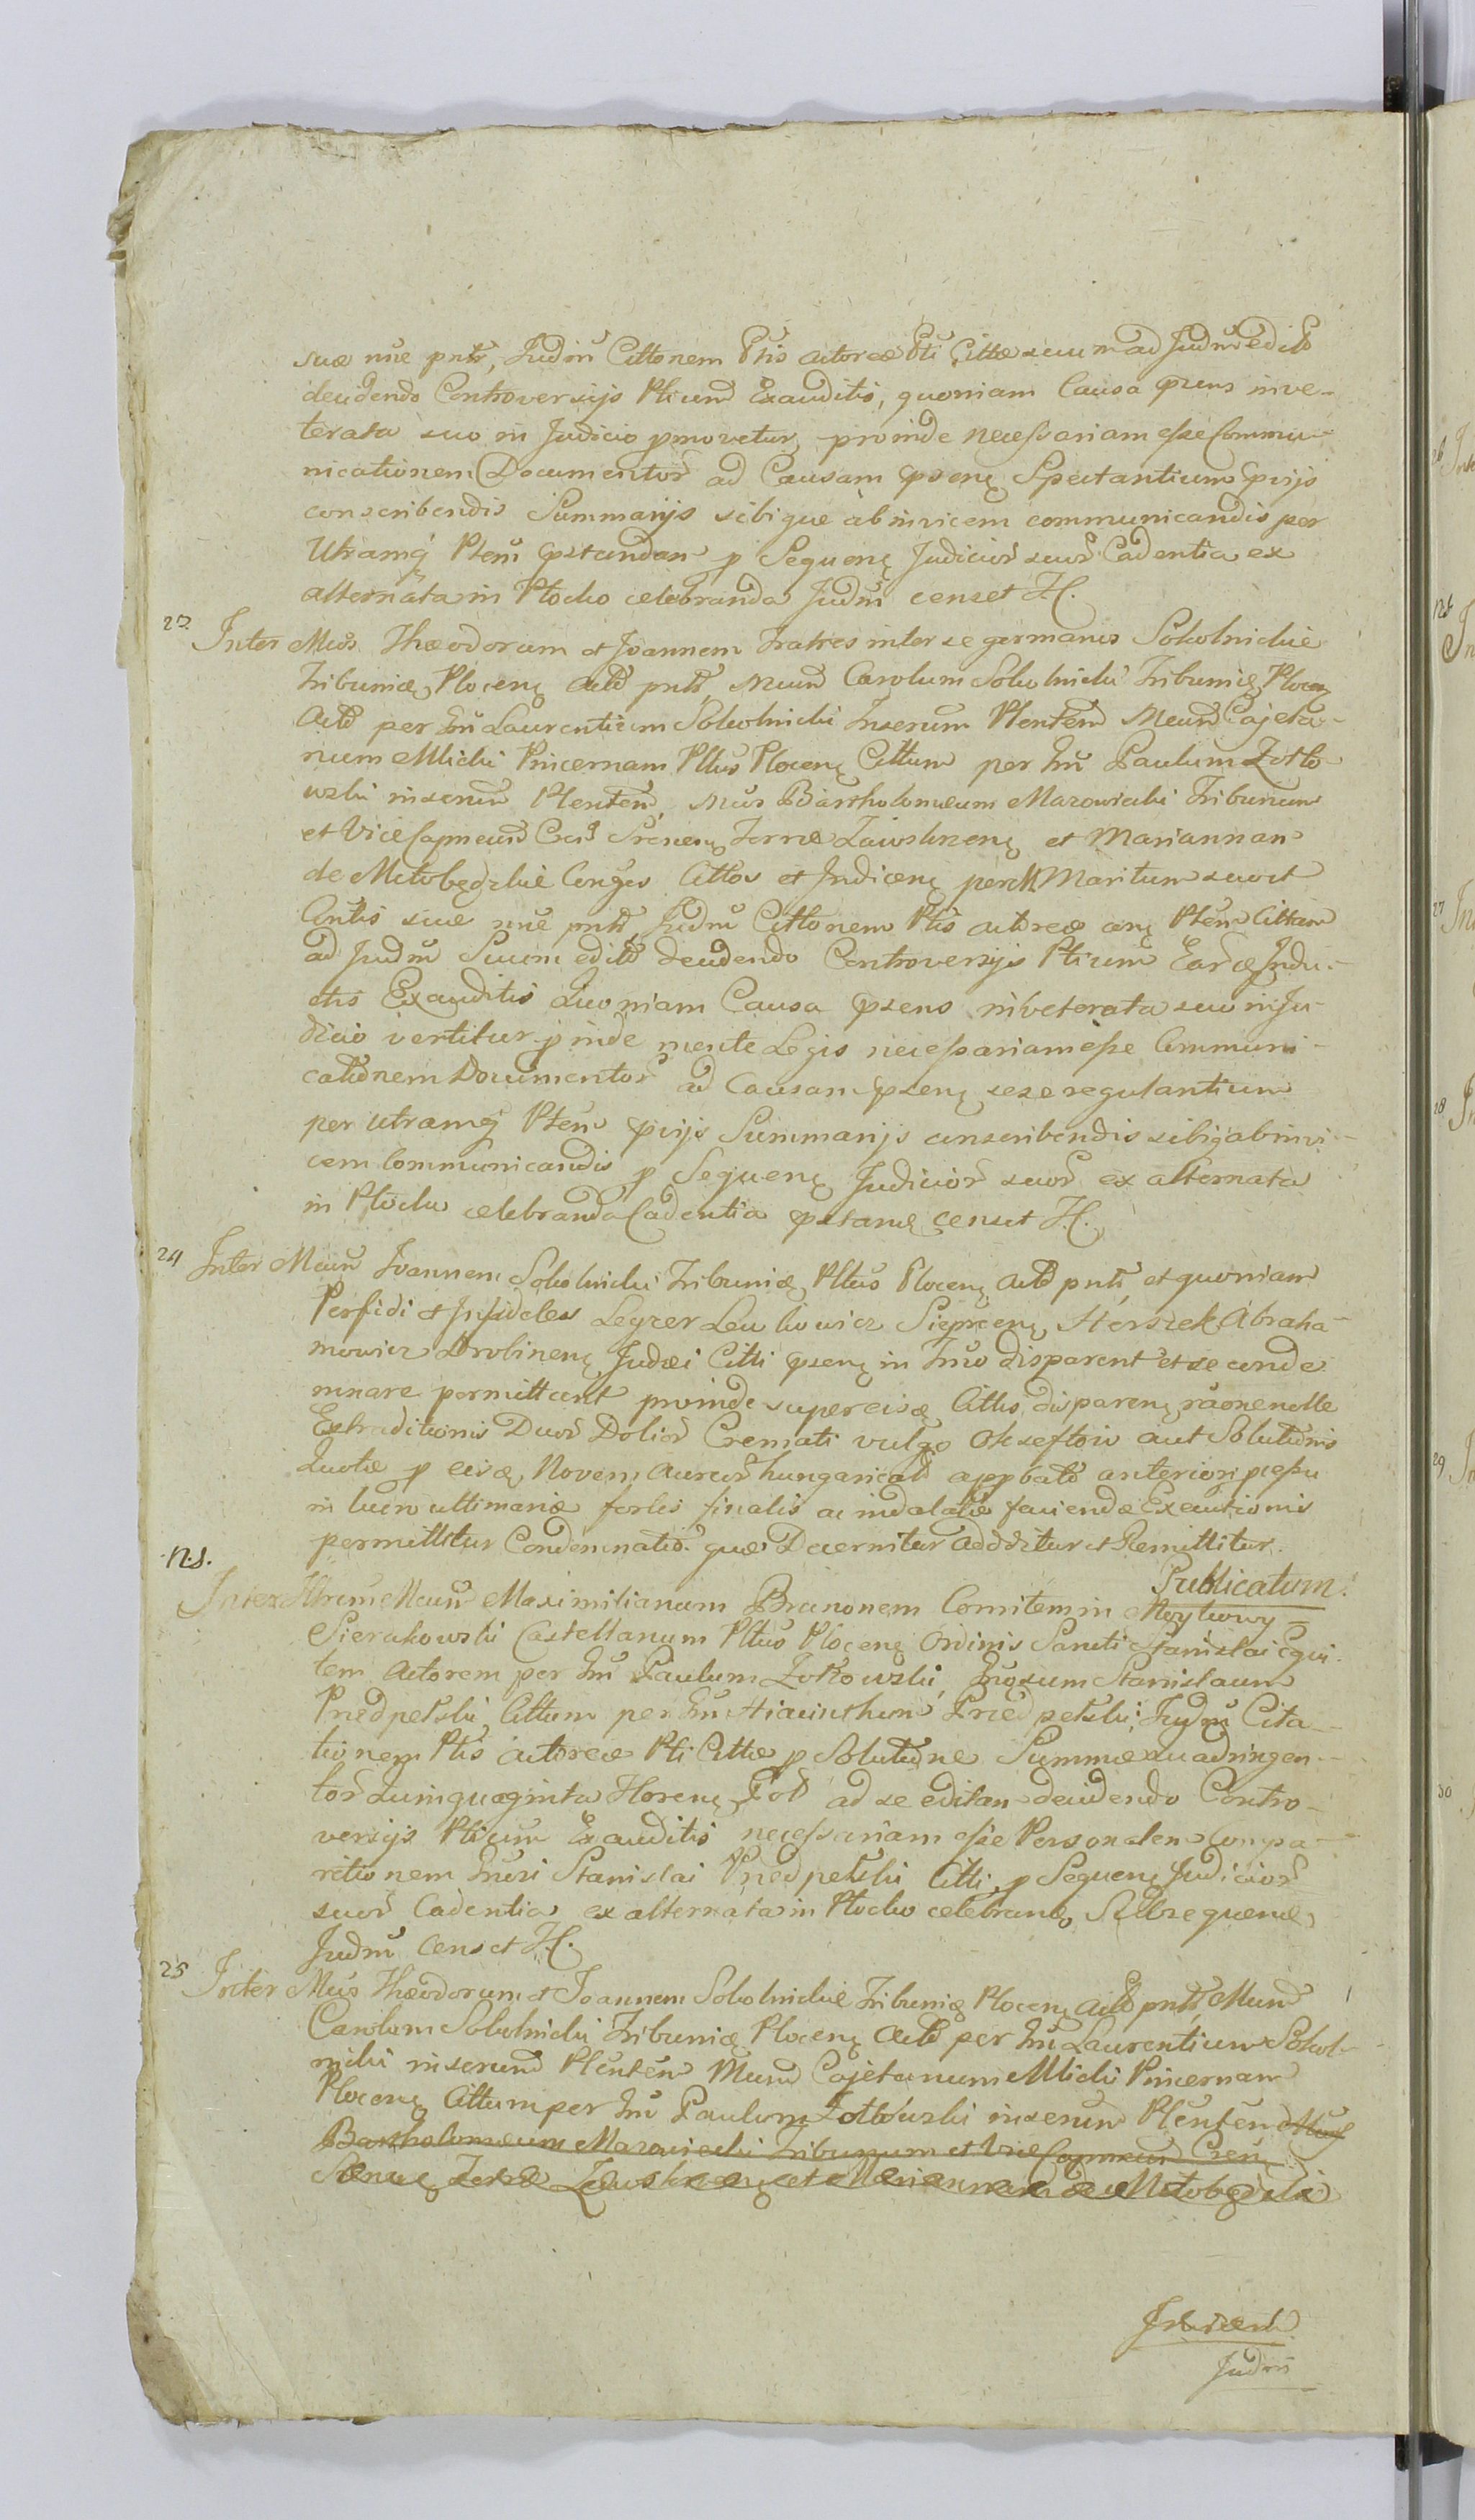 suæ nũe pntr, Judm̃ Cittonem Ptis actoreæ Pti Cittæ suum ad Judm̃ edit
decidendo Controversijs Ptium Exauditis, quoniam Causa pñens inve-
terata suo in Judicio pmovetur proinde necessariam esse Commu-
nicationem Documentor ad Causam psenę Spectantium pvijs
conscribendis Summarijs sibique ab invicem communicandis per
Utramq̃ Ptem pstandam p Sequenę Judicior suor Cadentia ex
alternata in Plocko celebranda Judm̃ censet H.
23 Inter Mcos Thæodorum et Joannem Fratres inter se germanos Sokolnickie
Tribunię Plocenę Act pntt, Mcum Carolum Sokolnicki Tribunię Plocenę
Act per Gm̃ Laurentium Sokolnicki Inserum Plentem Mcum Cajeta-
num Mlicki Pincernam Pltus Plocenę Cittum per Gm̃ Paulum Zotto
wski inserum Plentem, Mcos Bartholomeum Mazowiecki Tribunum
et Vice Capneum Cres Srenenę Terræ Zawskrzenę et Mariannam
de Mctobędzkie Conges Cittos et Indicenę per M Maritum suo et
Contis suæ nũe pntt, Judm̃ Cittonem Ptis actoreæ conę Ptem Cittam
ad Judm̃ Suum edit decidendo Controversijs Ptium Ear Indu-
ctis Exauditis Quoniam Causa psens inveterata suo in Ju-
dicio vertitur pinde mente Legis necessariam esse Communi-
cationem Documentor ad Causam psenę sese regulantium
per utramq̃ Ptem pvijs Summarijs conscribendis sibiq̃ abinvi-
cem Communicandis p Sequenę Judicior suor ex alternata
in Plocku celebranda Cadentia pstanę censet H.
24 Inter Mcum Joannem Sokolnicki Tribunię Pltus Plocenę Act pntt, et quoniam
Perfidi et Infideles Leyzer Lewkowicz Sieprcenę Herszek Abraha-
mowicz Drobinenę Judæi Citti psenę in Tmo disparent et se conde
mnare permittunt proinde super eisę Cittis disparenę raoneनolle
Extraditionis Duor Dolior Cremati vulgo Oksefton aut Solutionis
Quotæ p eisę Novem Aureor hungaricat appbato anteriori pcessu
in lucro ultimariæ fortis finalis ac indalatæ faciendæ Executionis
permittitur Condemnatio quæ Decernitur addditur et Remittitur.
N.S. Publicatum.
Inter Illrem Mcum Maximilianum Brunonem Comitem in
Sierakowski Castellanum Pltus Plocenę Ordinis Sancti Stanislai Equi-
tem Actorem per Gm̃ Paulum Zotkowski, Gnosum Stanislaum
Przedpetski Cittum per Gm̃ Hiacinthum Przedpetski, Judm̃ Cita-
tionem Ptis actoreæ Pti Cittæ p Solutione Summæ Quadringen-
tor Quinquaginta Florenę Pol ad se editam decidendo Contro-
versijs Ptium Exauditis necessariam esse Personalem Compa-
ritionem Gnosi Stanislai Przedpetski Citti p Sequenę Judicior
suor Cadentia ex alternata in Plocko celebranda Subsequenę
Judm̃ censet H.
25 Inter Mcos Thæodorum et Joannem Sokolnickie Tribunię Plocenę Act pntt, Mcum
Carolum Sokolnicki Tribunię Plocenę Act per Gm̃ Laurentium Sokol-
nicki inserum Plentem Mcum Cajetanum Mlicki Pincernam
Plocenę Cittum per Gm̃ Paulum Zottowski inserum Plentem Mcos
Bartholomæum Mazowiecki Tribunum et Vice Capneum Cres
Srenenę Terræ Zawskrzenę et Mariannam de Mctobędzkie
Judm̃